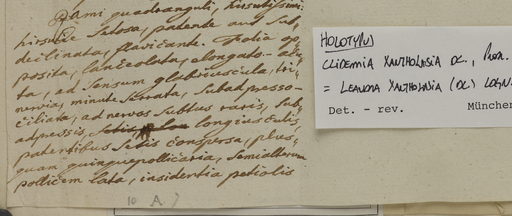 Rami quadranguli, hirsutissimi
hirsutie setosa, patente aut sub,
declinata, flavicante. Folia op
posita, lanceolata, elongato-
ta, ad sensum glabriuscula, tri,
nervia, minute serrata, subadpresso-
ciliata, ad nervos subtus raris, sub,
adpressis, longiusculis,
patentibus setis conspersa, plus,
quam quinquepollicaria, semialterum
pollicem lata, insidentia petiolis
10 A
HOLOTYPUS
CLIDEMIA XANTHOLASIA DC.,
= LEANDRA XANTHOLASIA (DC) COGN.
Det. - rev. München